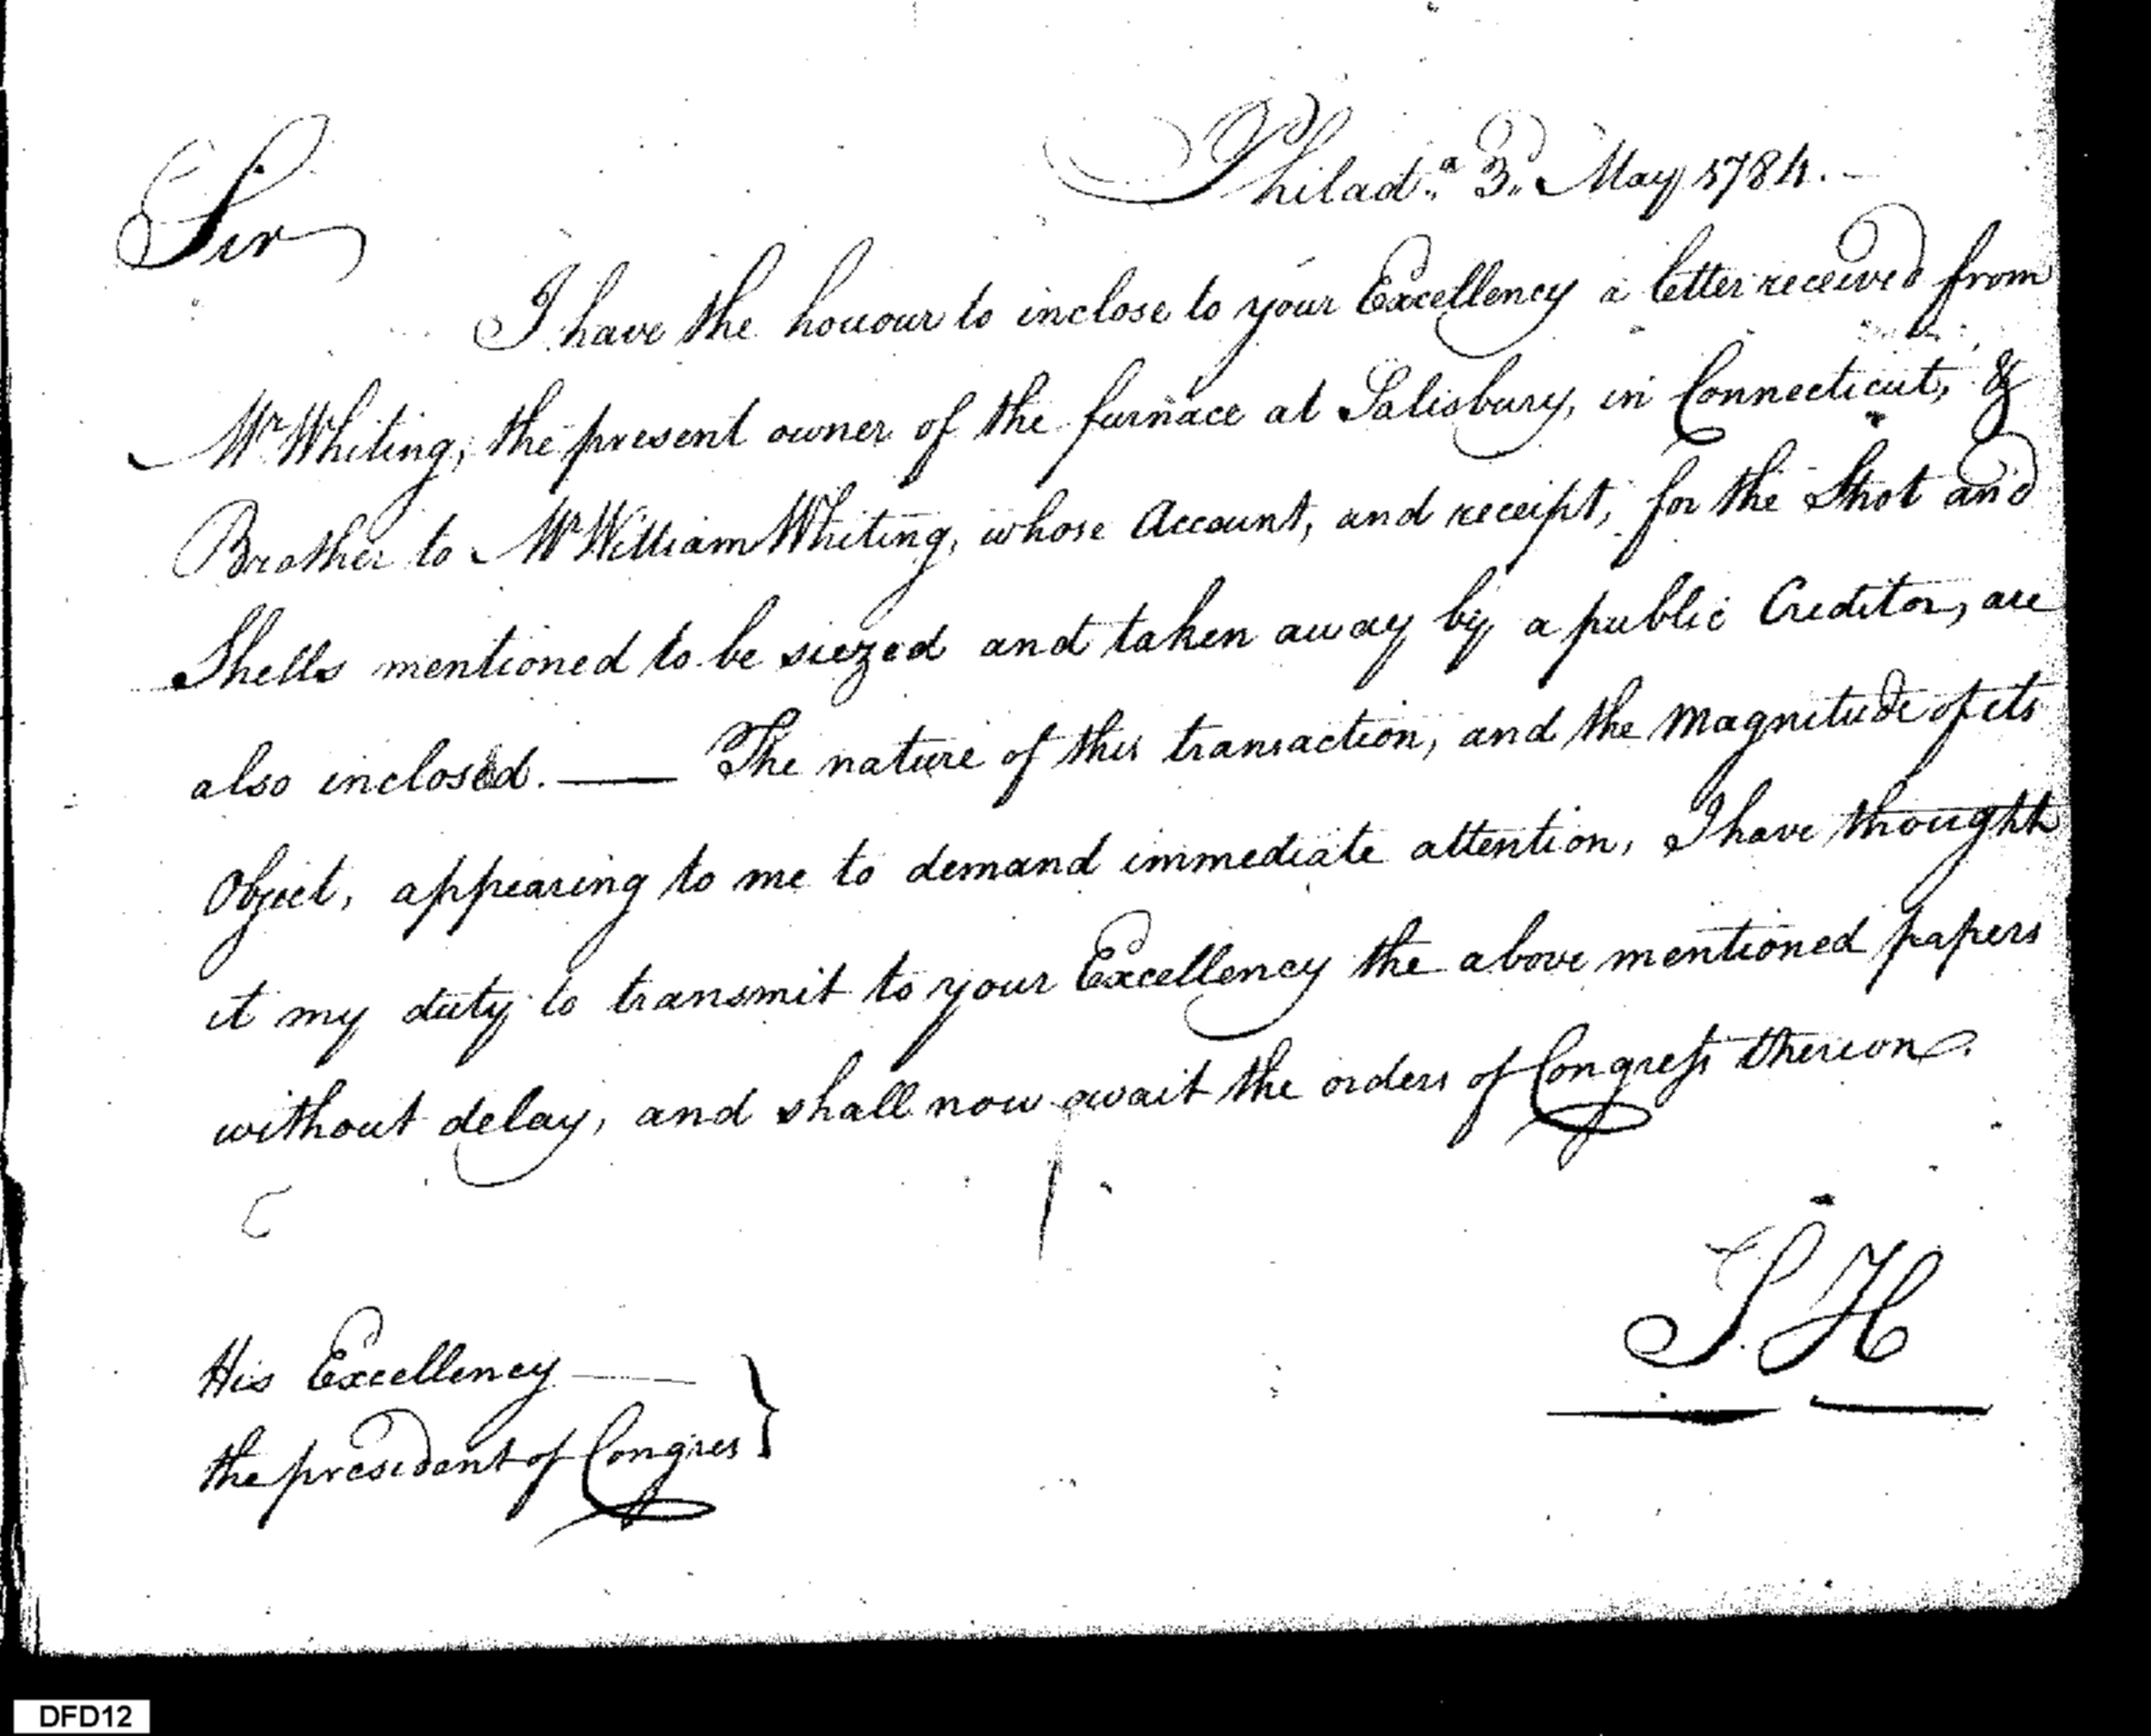 Philad.ª 3.d May 1784.—
Sir
I have the honour to inclose to your Excellency a letter received from
Mr Whiting, the present owner of the furnace at Salisbury, in Connecticut, &
Brother to Mr William Whiting, whose Account, and receipt, for the Shot and
Shells mentioned to be siezed and taken away by a public Creditor, are
also inclosed. — The nature of this transaction, and the magnitude of its
Object, appearing to me to demand immediate attention, I have thought
it my duty to transmit to your Excellency the above mentioned papers
without delay, and shall now await the orders of Congress thereon.
J. H
His Excellency —
the president of Congres }
DFD12